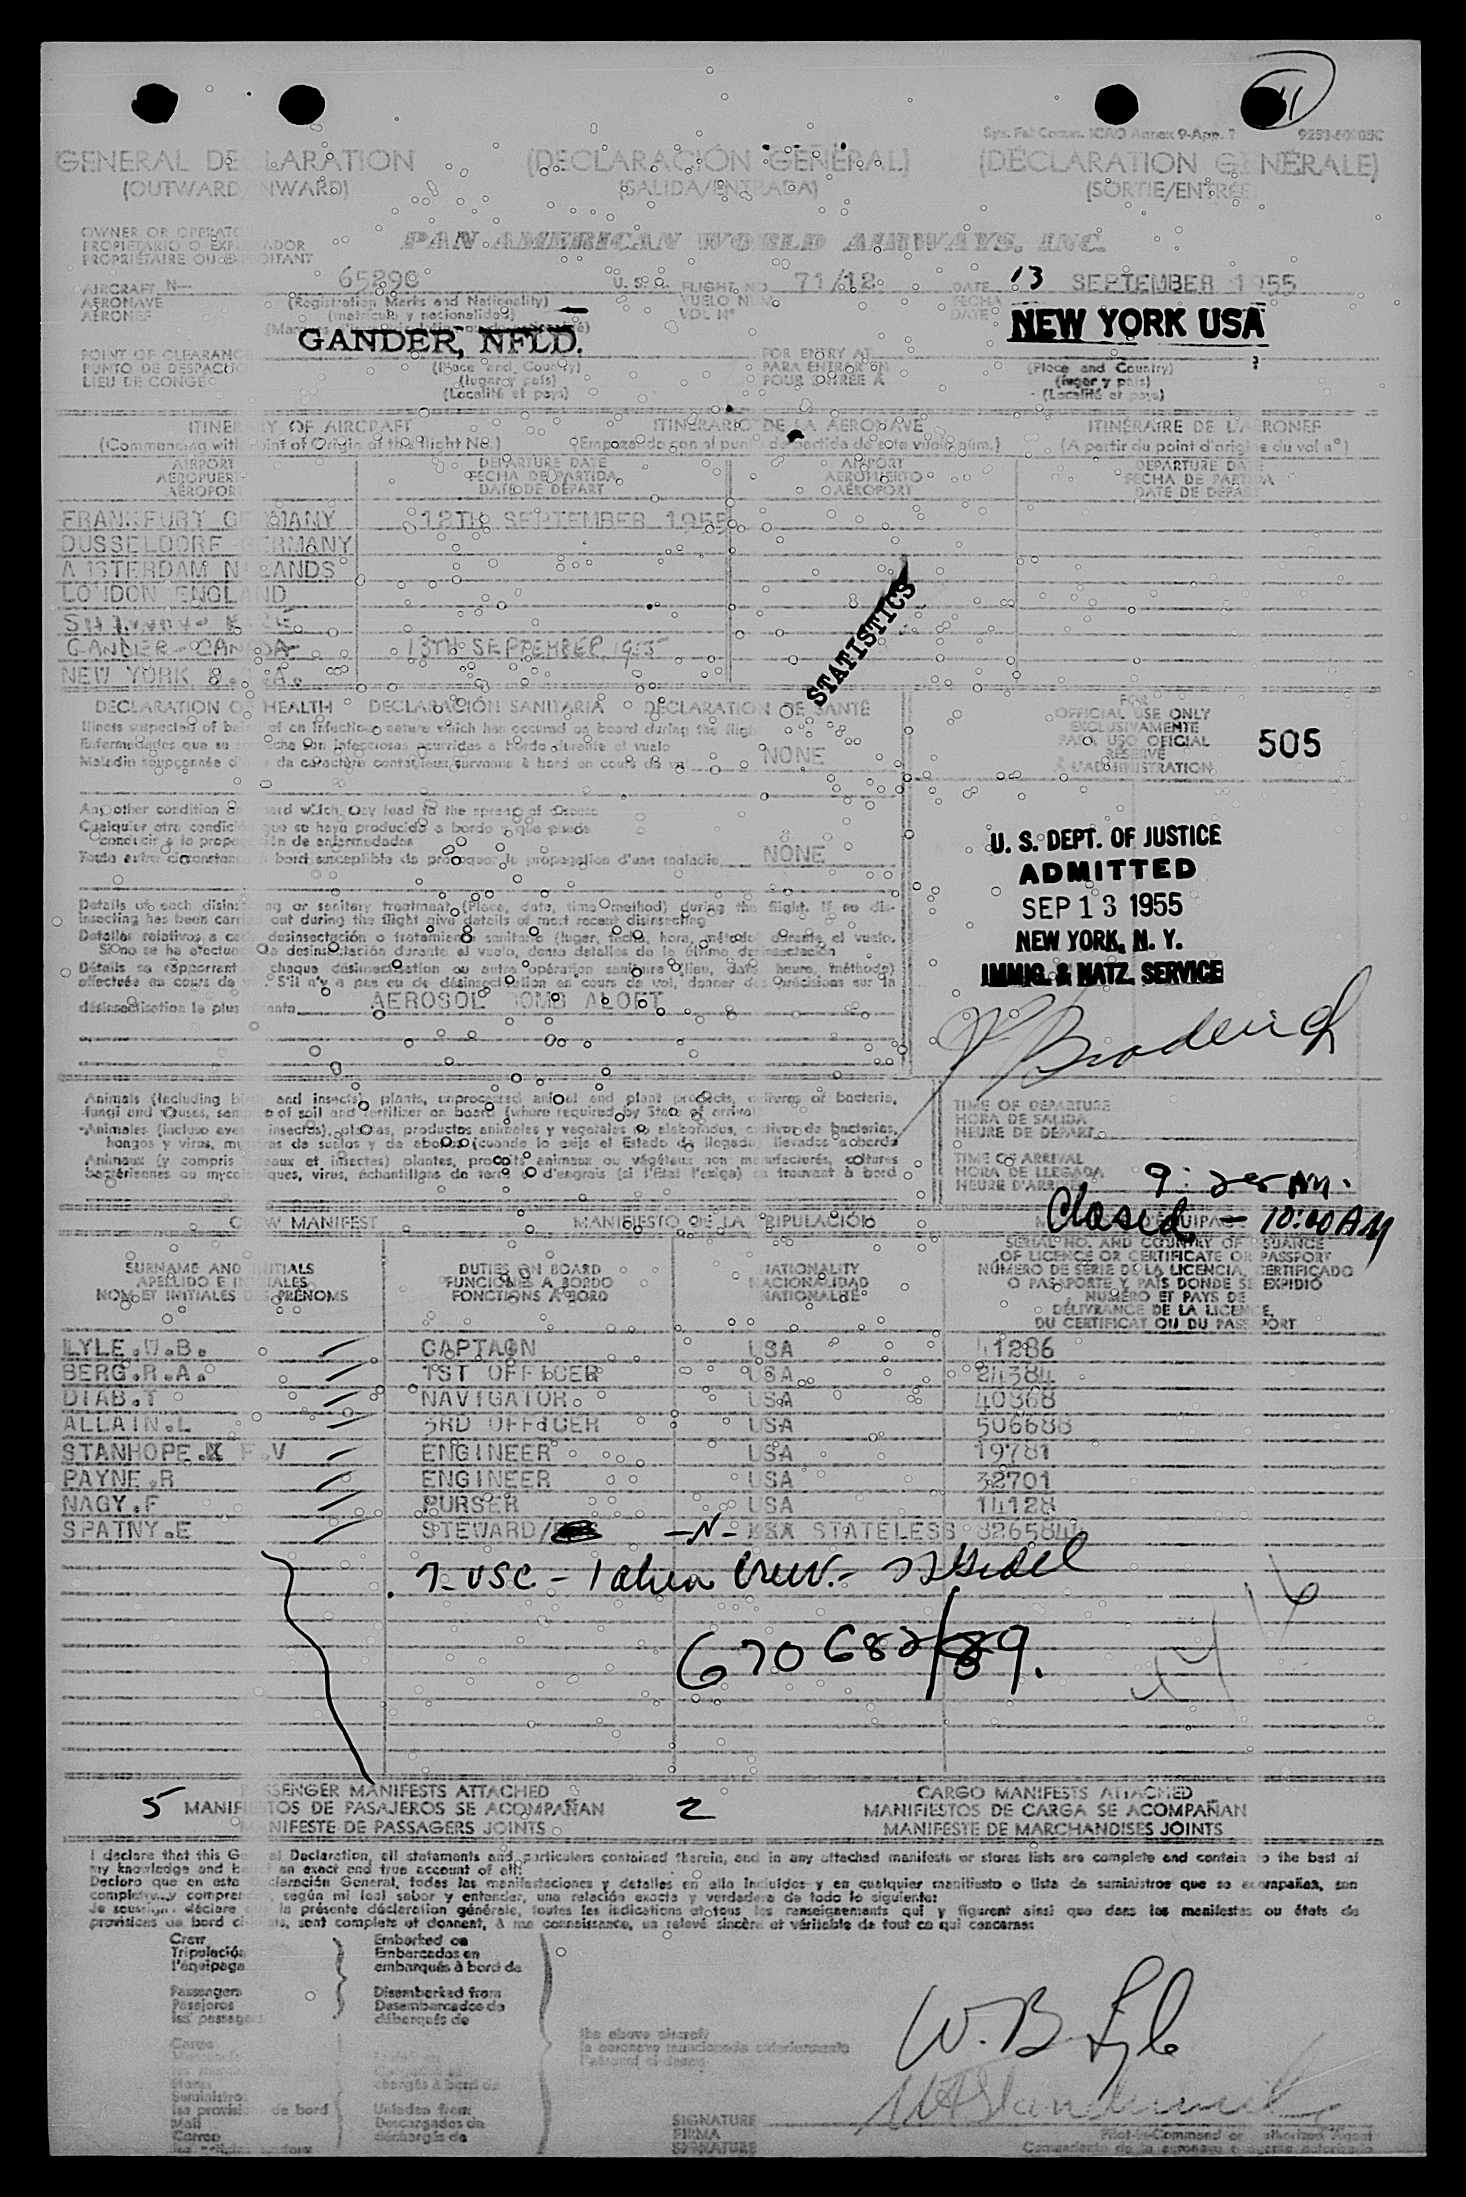 11
Sys. Fal Comm. ICAO Annex 9-App. 1
GENERAL DECLARATION (DECLARACIÓN GENERAL) (DÉCLARATION GÉNÉRALE)
(OUTWARD/INWARD) (SALIDA/ENTRADA) (SORTIE/ENTRÉE)
OWNER OR OPERATOR
PROPIETARIO O EXPLOTADOR
PROPRIÉTAIRE OU EXPLOITANT
PAN AMERICAN WORLD AIRWAYS, INC.
AIRCRAFT N— 6529 U. S. FLIGHT NO 71/12 DATE 13 SEPTEMBER 1955
AERONAVE (Registration Marks and Nationality) VUELO NUM. FECHA
AÉRONEF (matrícula y nacionalidad) VOL Nº DATE
GANDER, NFLD. NEW YORK USA
POINT OF CLEARANCE (Place and Country) FOR ENTRY AT (Place and Country)
PUNTO DE DESPACHO (lugar y país) PARA ENTRAR EN (lugar y país)
LIEU DE CONGÉ (Localité et pays) POUR ENTRÉE A (Localité et pays)
ITINERARY OF AIRCRAFT ITINERARIO DE LA AERONAVE ITINÉRAIRE DE L'AÉRONEF
(Commencing with Point of Origin of the flight No.) (A partir du point d'origine du vol nº)
AIRPORT DEPARTURE DATE AIRPORT DEPARTURE DATE
AEROPUERTO FECHA DE PARTIDA AEROPUERTO FECHA DE PARTIDA
AÉROPORT DATE DE DÉPART AÉROPORT DATE DE DÉPART
FRANKFURY GERMANY 12TH SEPTEMBER 1955
DUSSELDORF GERMANY
AMSTERDAM N LANDS
LONDON ENGLAND
GANDER - CANADA 13TH SEPTEMBER 1955
NEW YORK U.S.A.
STATISTICS
DECLARATION OF HEALTH DECLARACIÓN SANITARIA DÉCLARATION DE SANTÉ
Illness suspected of being of an infectious nature which has occurred on board during the flight
Enfermedades que se sospecha son infecciosas ocurridas a bordo durante el vuelo
Maladie soupçonnée d'être de caractère contagieux survenue à bord en cours de vol NONE
FOR
OFFICIAL USE ONLY
EXCLUSIVAMENTE
PARA USO OFICIAL
RÉSERVÉ
À L'ADMINISTRATION
505
Any other condition on board which may lead to the spread of disease
Cualquier otra condición que se haya producido a bordo y que pueda
conducir a la propagación de enfermedades
Toute autre circonstance à bord susceptible de provoquer la propagation d'une maladie NONE
U. S. DEPT. OF JUSTICE
ADMITTED
SEP 13 1955
NEW YORK, N. Y.
IMMIG. & NATZ. SERVICE
Broderick
Details of each disinsecting or sanitary treatment (Place, date, time, method) during the flight. If no dis-
insecting has been carried out during the flight give details of most recent disinsecting
Detalles relativos a cada desinsectación o tratamiento sanitario (lugar, fecha, hora, método) durante el vuelo.
Si no se ha efectuado desinsectación durante el vuelo, dense detalles de la última desinsectación
Détails se rapportant à chaque désinsectisation ou autre opération sanitaire (lieu, date, heure, méthode)
effectuée au cours de vol. S'il n'y a pas eu de désinsectisation en cours de vol, donner des précisions sur la
désinsectisation la plus récente AEROSOL BOMB ALOFT
Animals (including birds and insects), plants, unprocessed animal and plant products, cultures of bacteria,
fungi and viruses, samples of soil and fertilizer on board (where required by State of arrival)
Animales (incluso aves e insectos), plantas, productos animales y vegetales no elaborados, cultivos de bacterias,
hongos y virus, muestras de suelos y de abonos (cuando lo exija el Estado de llegada) llevados a bordo
Animaux (y compris oiseaux et insectes) plantes, produits animaux ou végétaux non manufacturés, cultures
bactériennes ou mycologiques, virus, échantillons de terre et d'engrais (si l'État l'exige) se trouvant à bord
TIME OF DEPARTURE
HORA DE SALIDA
HEURE DE DÉPART
TIME OF ARRIVAL
HORA DE LLEGADA
HEURE D'ARRIVÉE 9:25 AM.
Closed - 10:00 AM
CREW MANIFEST MANIFIESTO DE LA TRIPULACIÓN
SURNAME AND INITIALS DUTIES ON BOARD NATIONALITY SERIAL NO. AND COUNTRY OF ISSUANCE
APELLIDO E INICIALES FUNCIONES A BORDO NACIONALIDAD OF LICENCE OR CERTIFICATE OR PASSPORT
NOM ET INITIALES DES PRÉNOMS FONCTIONS A BORD NATIONALITÉ NÚMERO DE SERIE DE LA LICENCIA, CERTIFICADO
O PASAPORTE Y PAÍS DONDE SE EXPIDIÓ
NUMÉRO ET PAYS DE
DÉLIVRANCE DE LA LICENCE,
DU CERTIFICAT OU DU PASSEPORT
LYLE.W.B. CAPTAIN USA 41286
BERG.R.A. 1ST OFFICER USA 24384
DIAB.T NAVIGATOR USA 40868
ALLAIN.L 3RD OFFICER USA 506688
STANHOPE. F.V ENGINEER USA 19781
PAYNE.R ENGINEER USA 32701
NAGY.F PURSER USA 14128
SPATNY.E STEWARD/ -N- STATELESS
7-USC - 1 alien crew. -
670682/89.
5 PASSENGER MANIFESTS ATTACHED 2 CARGO MANIFESTS ATTACHED
MANIFIESTOS DE PASAJEROS SE ACOMPAÑAN MANIFIESTOS DE CARGA SE ACOMPAÑAN
MANIFESTE DE PASSAGERS JOINTS MANIFESTE DE MARCHANDISES JOINTS
I declare that this General Declaration, all statements and particulars contained therein, and in any attached manifests or stores lists are complete and contain to the best of
my knowledge and belief an exact and true account of all:
Declaro que en esta Declaración General, todas las manifestaciones y detalles en ella incluidos y en cualquier manifiesto o lista de suministros que se acompañan, son
completos y comprenden, según mi leal saber y entender, una relación exacta y verdadera de todo lo siguiente:
Je soussigné déclare que la présente déclaration générale, toutes les indications et tous les renseignements qui y figurent ainsi que dans les manifestes ou états de
provisions de bord ci-joints, sont complets et donnent, à ma connaissance, un relevé sincère et véritable de tout ce qui concerne:
Crew Embarked on
Tripulación Embarcados en
l'équipage embarqués à bord de
Passengers Disembarked from
Pasajeros Desembarcados de
les passagers débarqués de
the above aircraft
la aeronave mencionada anteriormente
Cargo
chargés à bord de
Stores
Suministros
les provisions de bord Unladen from
Mail Descargados de
Correo déchargés de
W. B. Lyle
SIGNATURE
FIRMA
SIGNATURE
Pilot-in-Command or authorized Agent
Comandante de la aeronave o agente autorizado